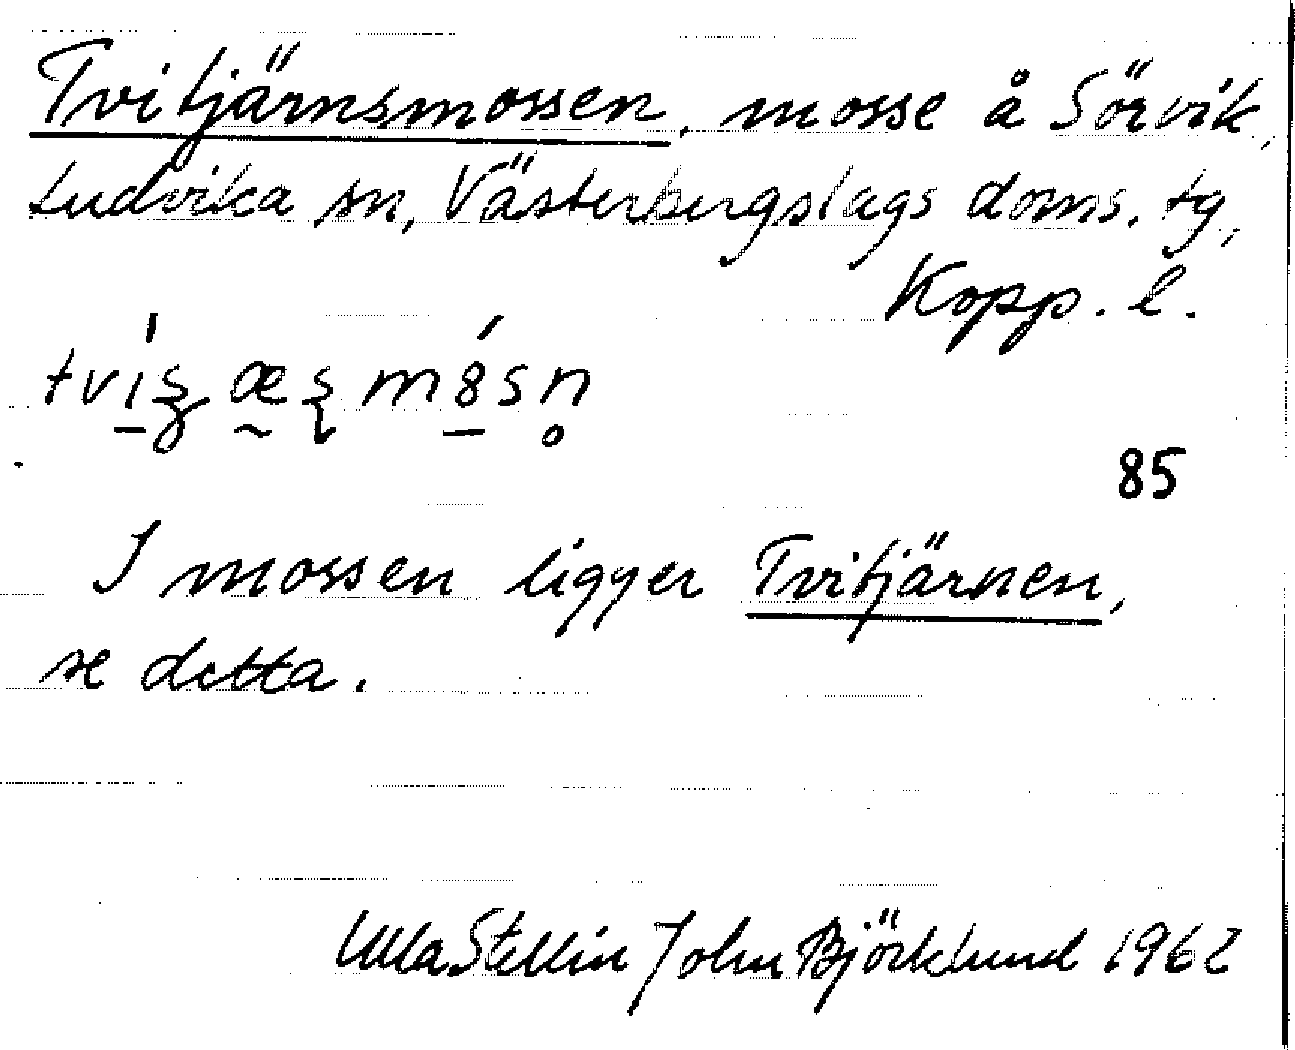 Tvitjärnsmossen, mosse å Sörvik,
Ludvika sn, Västerbergslags doms. tg,
Kopp. l.
85
I mossen ligger Tvitjärnen,
se detta.
Ulla Stellin John Björklund 1962